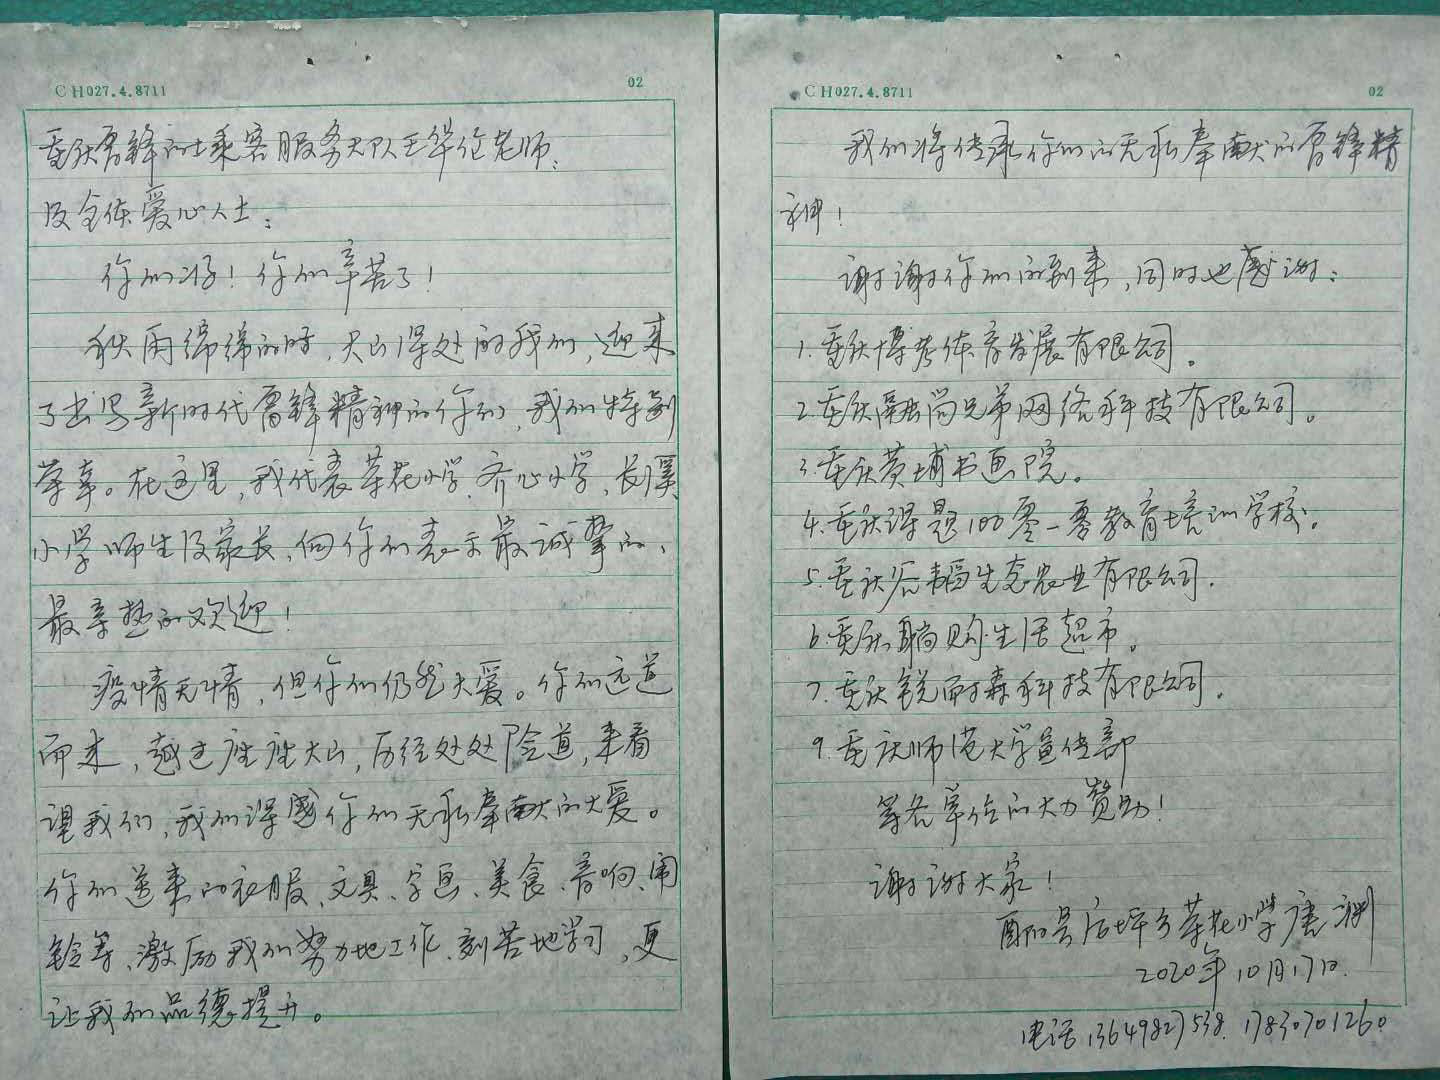 CH027.4.8711
02
重庆雷锋的士乘客服务大队王华伦老师:
及全体爱心人士:
你们好!你们辛苦了!
秋雨绵绵的时,大山深处的我们,迎来
了书写新时代雷锋精神的你们,我们特别
荣幸。在这里,我代表茶花小学、齐心小学、长溪
小学师生及家长,向你们表示最诚挚的、
最亲热的欢迎!
疫情无情,但你们仍然大爱。你们远道
而来,越过座座大山,历经处处险道,来看
望我们,我们深感你们无私奉献的大爱。
你们送来的衣服、文具、字画、美食、音响、闹
铃等,激励我们努力地工作、刻苦地学习,更
让我们品德提升。
CH027.4.8711
02
我们将传承你们的无私奉献的雷锋精
神!
谢谢你们的到来,同时也感谢:
1.重庆博考体育发展有限公司。
2.重庆融尚兄弟网络科技有限公司。
3.重庆黄埔书画院。
4.重庆课题100零一零教育培训学校。
5.重庆谷稻生态农业有限公司.
6.重庆躺购生活超市。
7.重庆锐耐森科技有限公司.
9.重庆师范大学宣传部
等各单位的大力赞助!
谢谢大家!
酉阳县后坪乡茶花小学唐渊
2020年10月17日.
电话13649827538. 17830701260